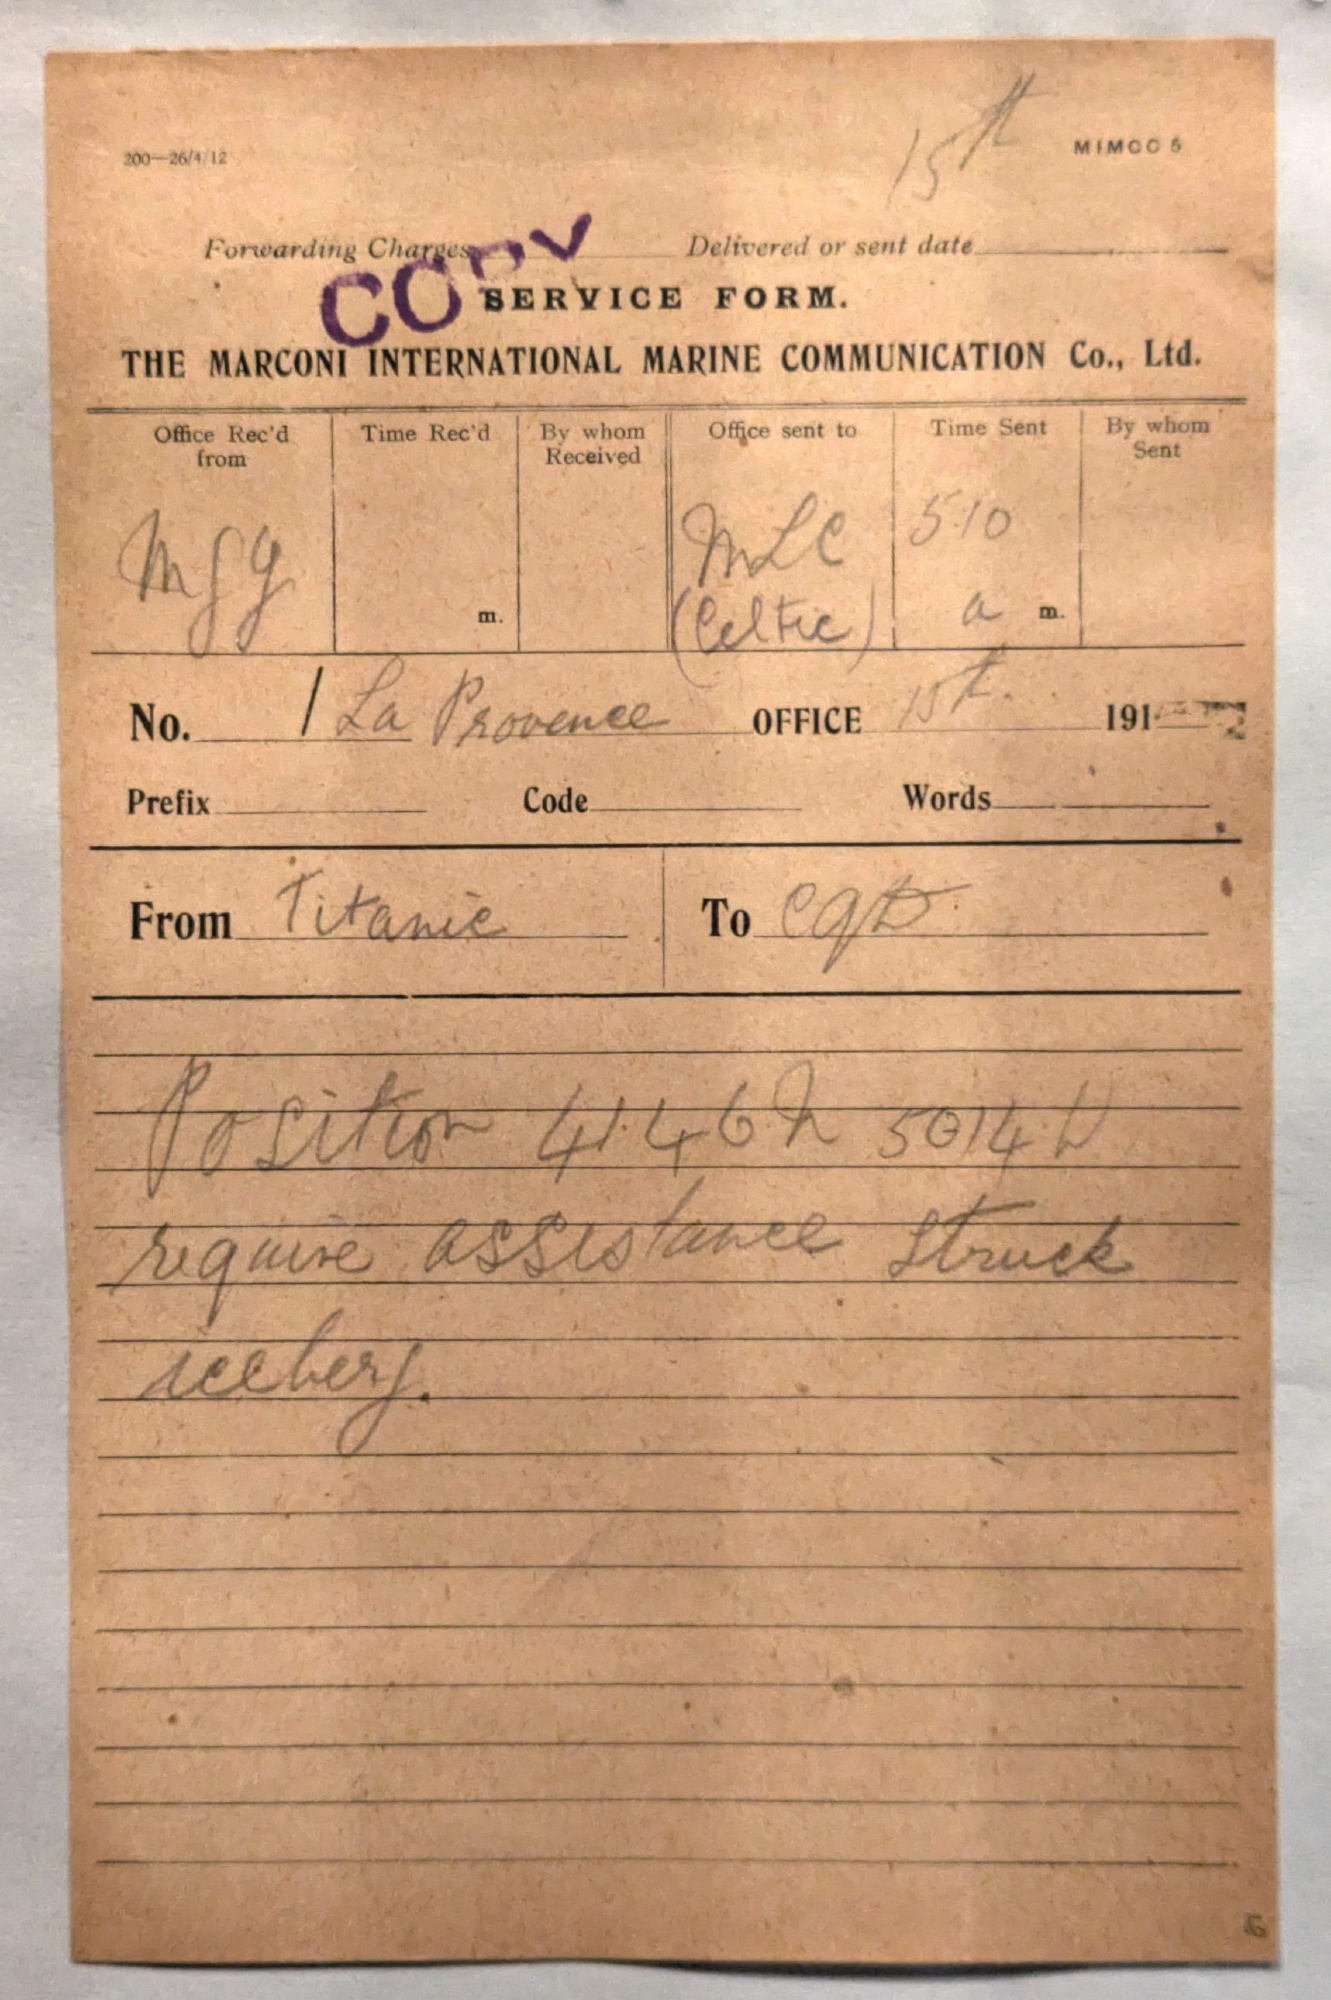 15th
200—26/4/12
MIMCC 5
Forwarding Charges
Delivered or sent date
COPY
SERVICE FORM.
THE MARCONI INTERNATIONAL MARINE COMMUNICATION Co., Ltd.
Office Rec'd from
Time Rec'd
By whom Received
Office sent to
Time Sent
By whom Sent
MGY
m.
MLC
(Celtic)
5.10
a m.
No. 1 La Provence OFFICE 15th. 191
Prefix Code Words
From Titanic To CQD
Position 41.46 N 5014 W
require assistance struck
iceberg.